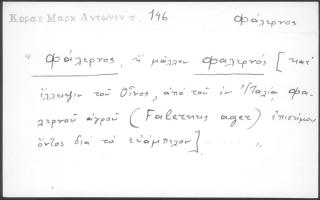 Κοραη Μαρκ Αντωνιν σ. 146
φάλερνος
" Φάλερνος, ἢ μᾶλλον φαλερνός [κατ'
ἔλλειψιν τοῦ Οἶνος, ἀπό τοῦ ἐν Ἰταλίᾳ Φα-
λερνοῦ ἀγροῦ (Falernus ager) ἐπισήμου
ὄντος διά τὸ εὐάμπελον] ..... „